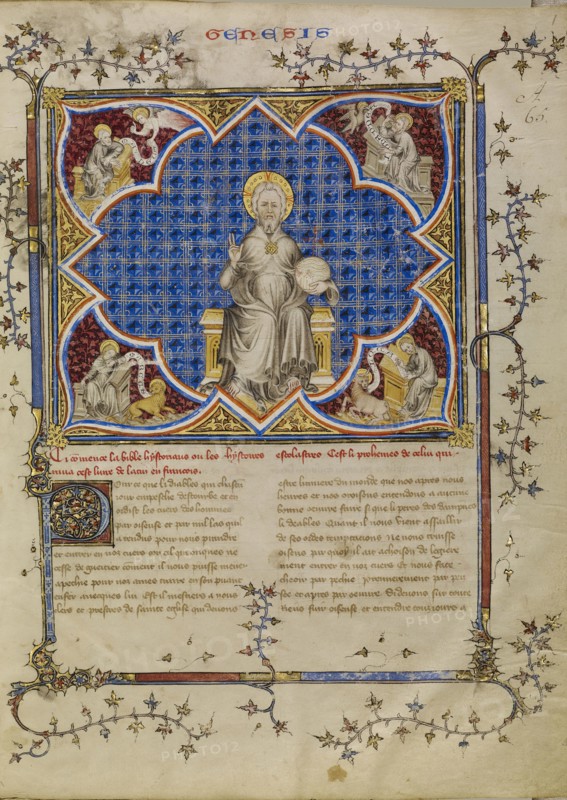 GENESIS
A
65
Ci cōmence la bible hystoriaus ou les hystoires escolastres Cest li prohemes de celui qui
mist cest livre de latin en francois.
Pour ce que li diables qui chascun
iour empesche destourbe et en
ordist les cuers des hommes
par oiseuse et par mil las quil
a tendus pour nous prendre
et entrer en nos cuers ou il onques ne
cesse de guetier cōment il nous puisse mener
a pechie pour nos ames traire en son puant
enfer avecques lui Est il mestiers a nous
clers et prestres de sainte eglise qui devons
estre lumiere du monde que nos apres nous
heures et nos oroisons entendons a aucune
bonne oeuvre faire si que
li deables Quant il nous vient assaillir
de ses oldes temptacions Ne nous truisse
oiseus par quoy il ait achoison de legiere
ment entrer en nos cuers et nous face
cheoir par pechie premierement par pen
see et apres par oeuvre Si devons sur toute
riens fuir oiseuse et entendre tousiours a
PHOTO12